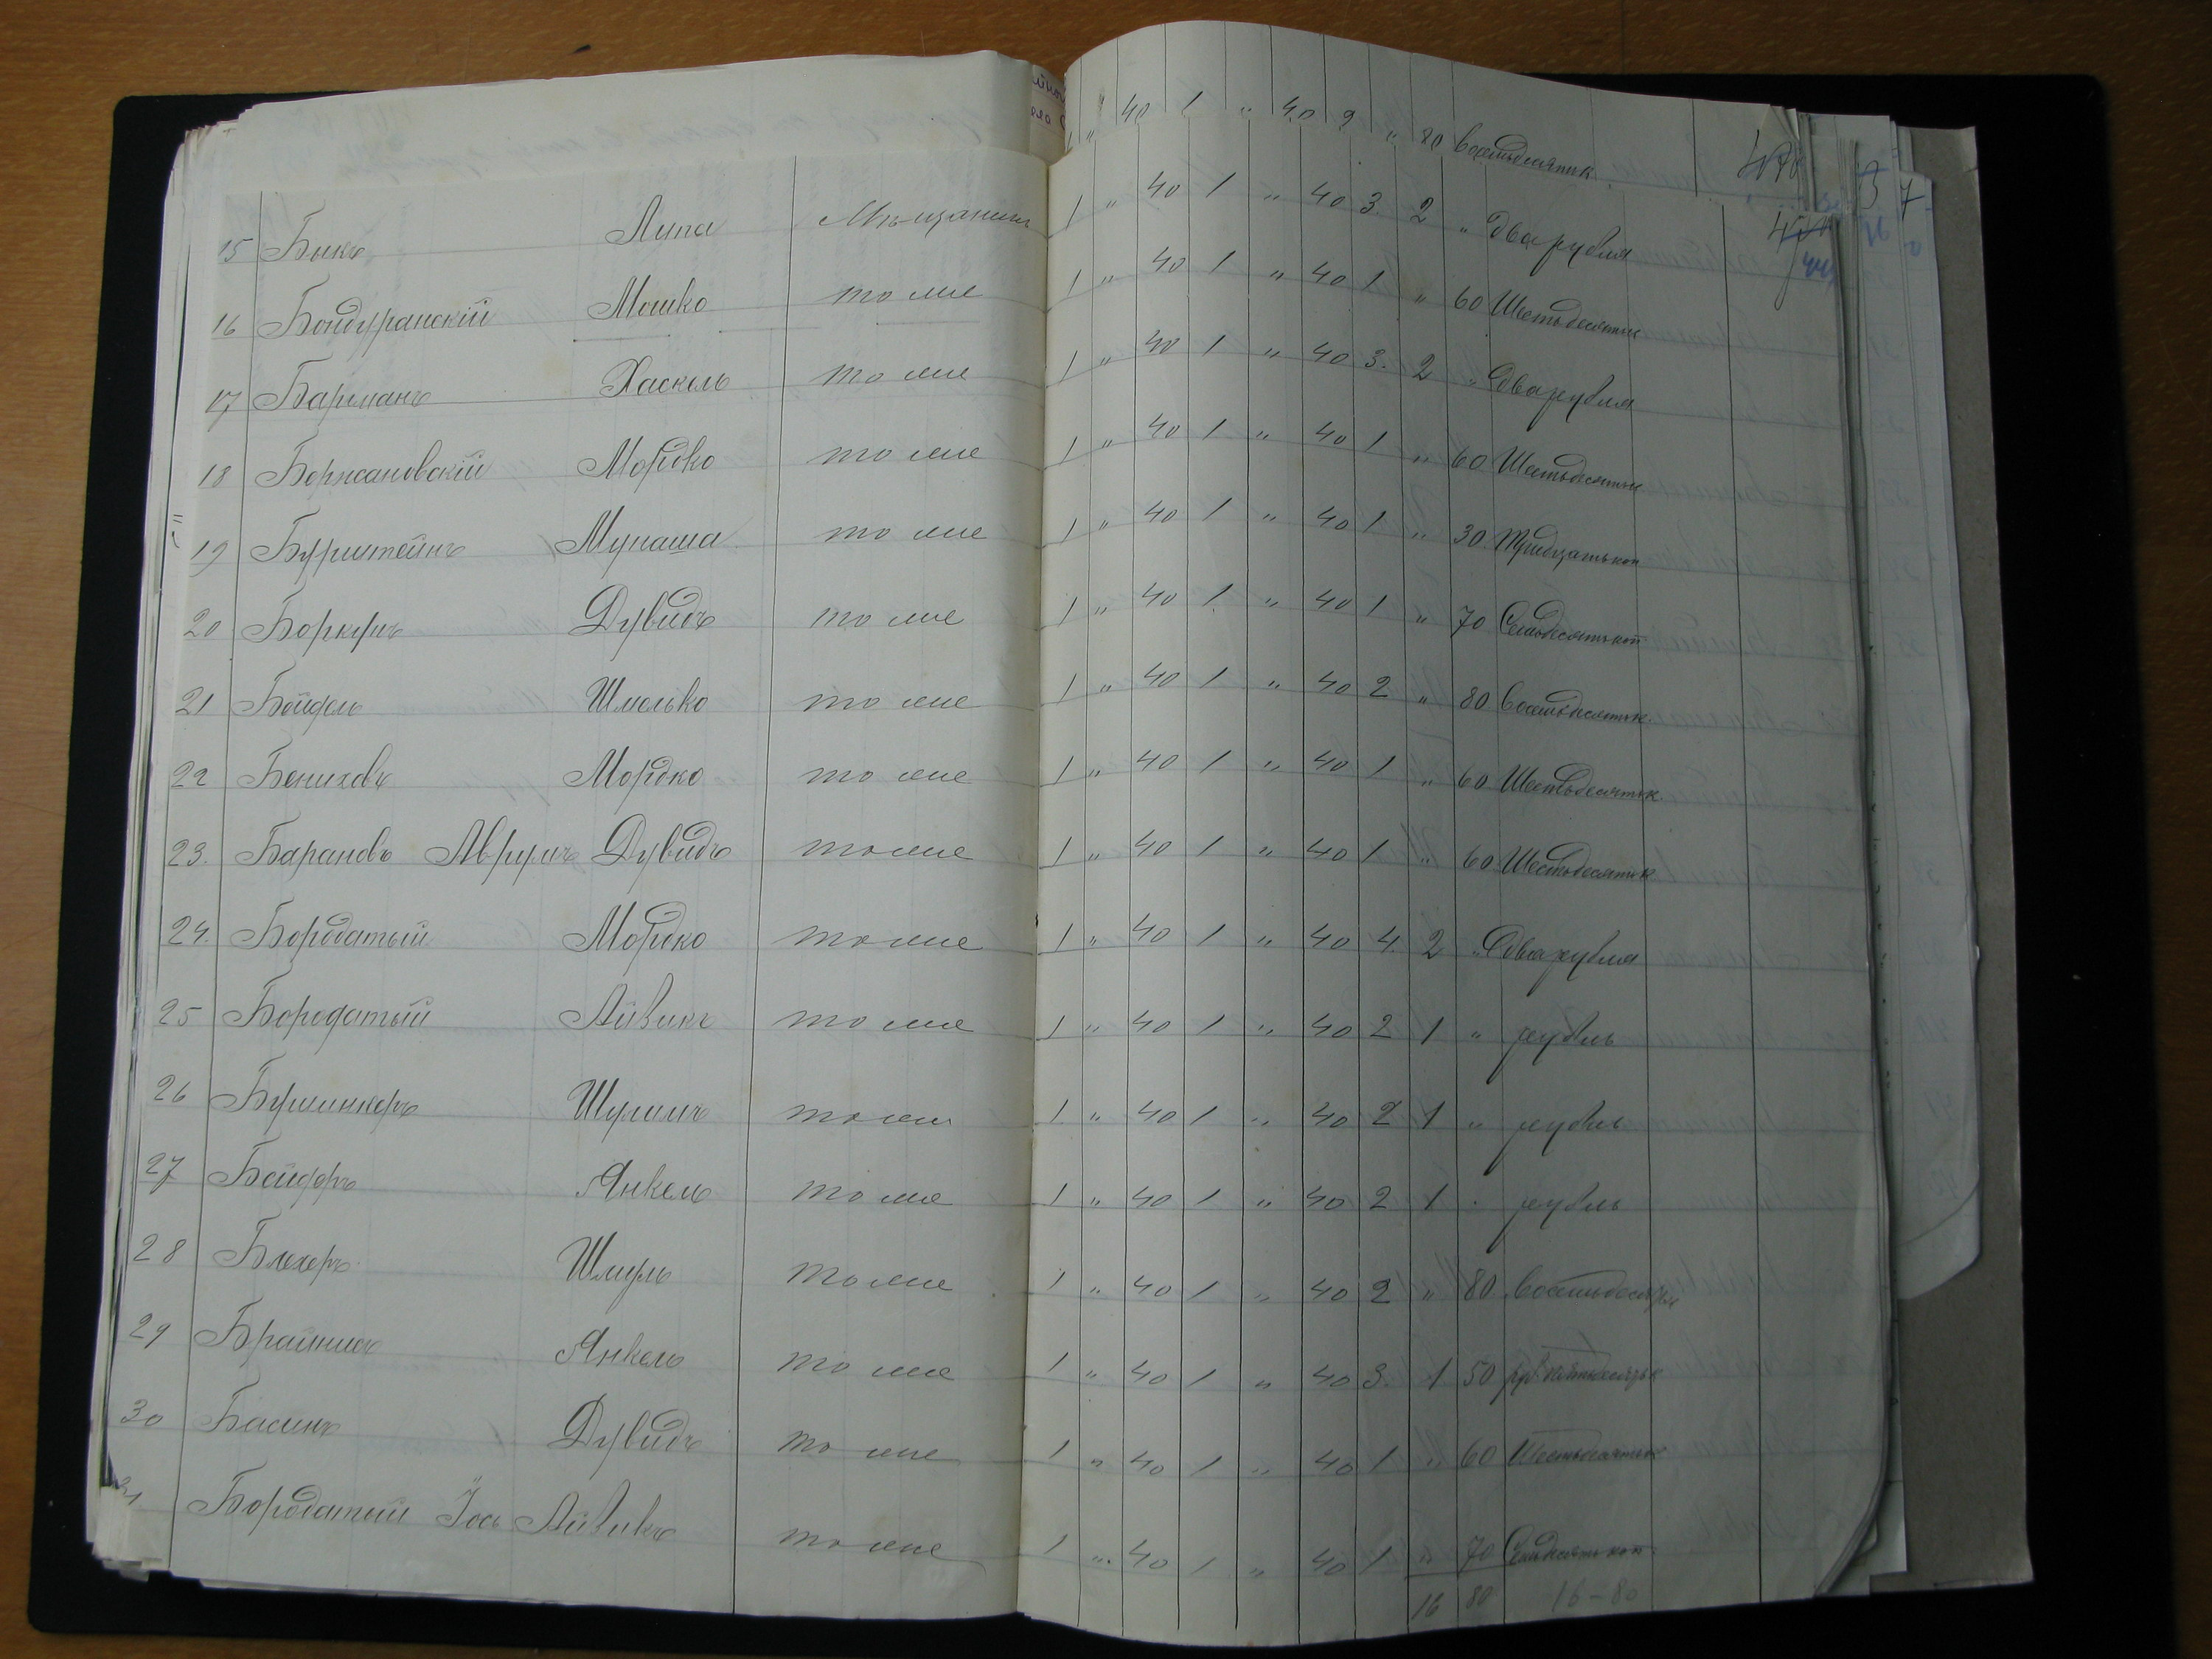 1 " 40 1 " 40 2 " 80 восемьдесятк
15 Быкъ Липа Мѣщанинъ 1 " 40 1 " 40 3. 2 " два рубля
16 Бондуранскій Мошко тоже 1 " 40 1 " 40 1 " 60 Шестьдесятк
17 Барманъ Хаскель тоже 1 " 40 1 " 40 3. 2 " два рубля
18 Боржановскій Мордко тоже 1 " 40 1 " 40 1 " 60 Шестьдесятк
19 Бурштейнъ тоже 1 " 40 1 " 40 1 " 30 Тридцать коп
20 Боркумъ Дувидъ тоже 1 " 40 1 " 40 1 " 70 Семьдесять коп
21 Шмелько тоже 1 " 40 1 " 40 2 " 80 восемьдесять к.
22 Бениховъ Мордко тоже 1 " 40 1 " 40 1 " 60 Шестьдесять к.
23. Барановъ Аврумъ Дувидъ тоже 1 " 40 1 " 40 1 " 60 Шестьдесять к
24. Бородатый Мордко тоже 1 " 40 1 " 40 4. 2 " два рубля
25 Бородатый Айзикъ тоже 1 " 40 1 " 40 2 1 " рубль
26 Шулимъ тоже 1 " 40 1 " 40 2 1 " рубль
27 Янкель тоже 1 " 40 1 " 40 2 1 " рубль
28 Блехеръ Шмуль тоже 1 " 40 1 " 40 2 " 80 восемьдесятк
29 Янкель тоже 1 " 40 1 " 40 3. 1 50
30 Басинъ Дувидъ тоже 1 " 40 1 " 40 1 " 60 Шестьдесятк
31 Бородатый Іось Айзикъ тоже 1 " 40 1 " 40 1 " 70 Семьдесять коп.
16 80 16-80